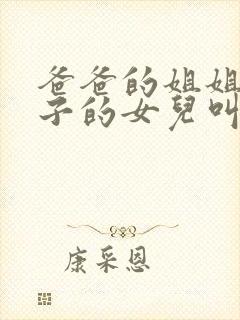 爸爸的姐姐
子的女兒叫
康采恩